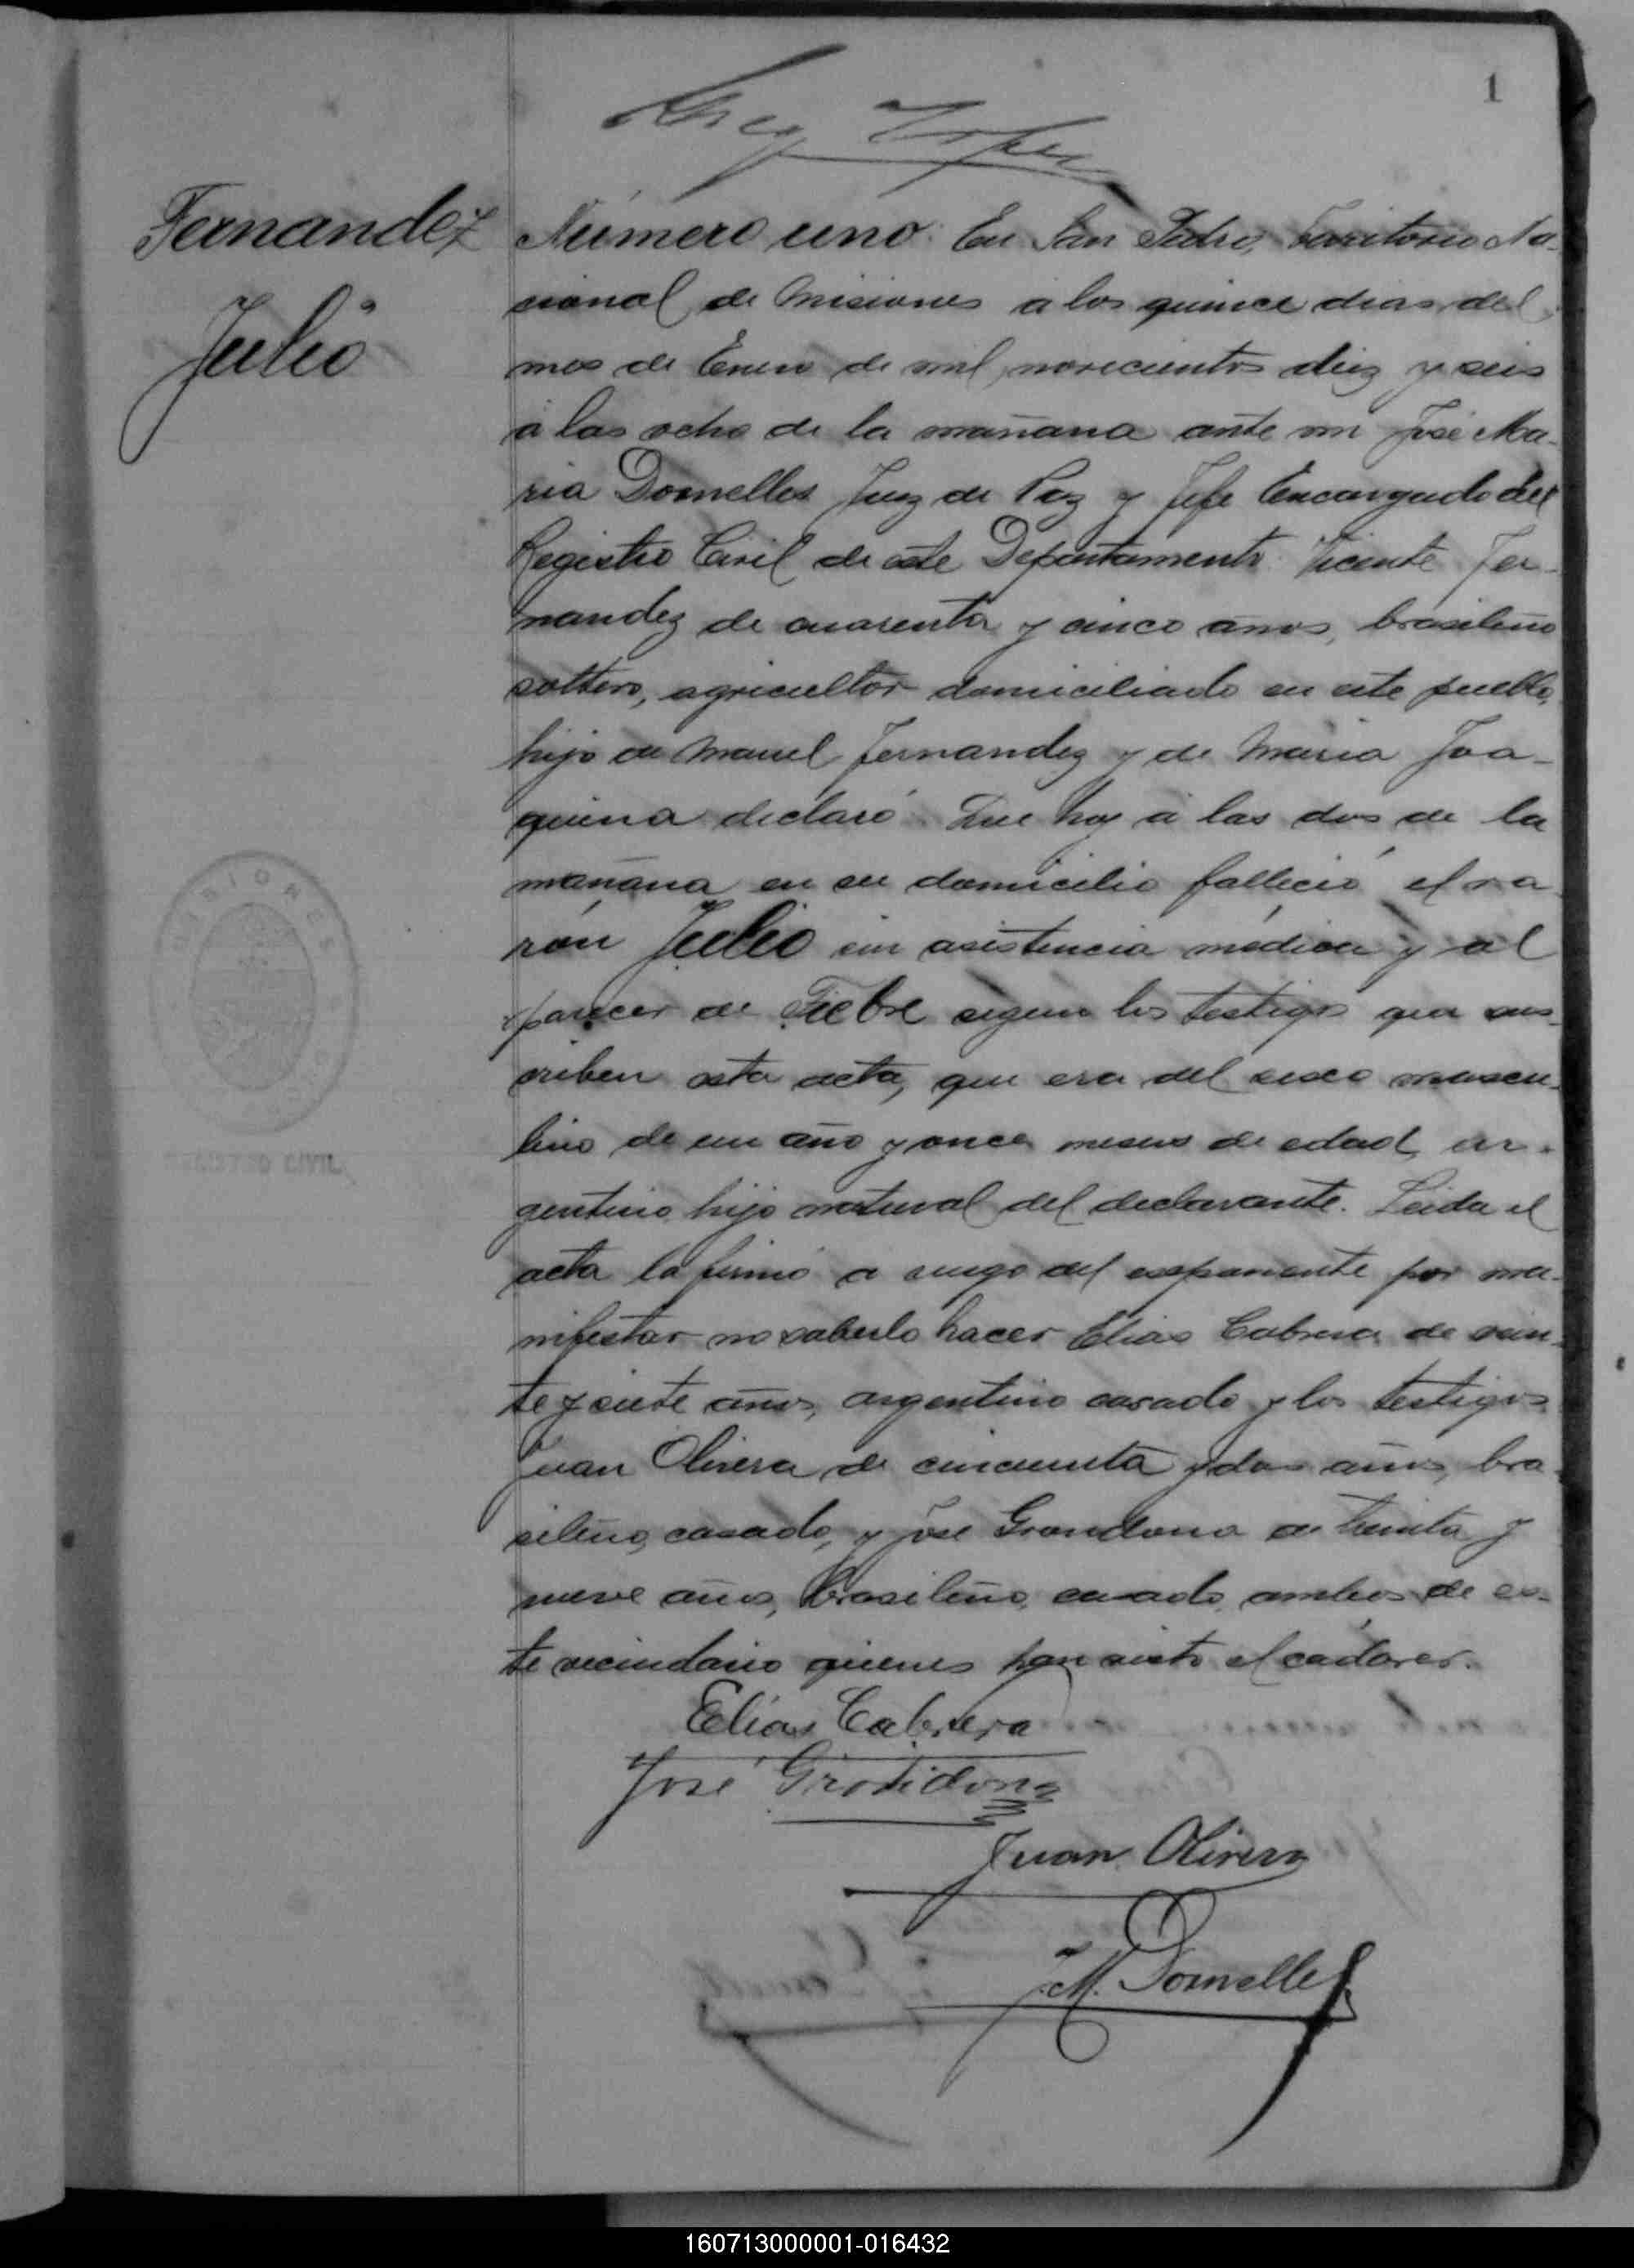 1
Fernandez
Julio
Número uno. En San Pedro, Territorio Na-
cional de Misiones a los quince dias del
mes de Enero de mil novecientos diez y seis
á las ocho de la mañana ante mi José Ma-
ria Dornelles Juez de Paz y Jefe Encargado del
Registro Civil de este Departamento Vicente Fer-
nandez de cuarenta y cinco años, brasileño
soltero, agricultor domiciliado en este pueblo,
hijo de Manuel Fernandez y de Maria Joa-
quina declaró: Que hoy á las dos de la
mañana en su domicilio falleció el va
rón Julio sin asistencia médica y al
parecer de Fiebre segun los testigos que sus-
criben esta acta, que era del sexo mascu-
lino de un año y once meses de edad, ar-
gentino, hijo natural del declarante. Leida el
acta la firmó a ruego del exponente por ma-
nifestar no saberlo hacer Elias Cabrera de vein-
te y siete años, argentino casado y los testigos
Juan Olivera de cincuenta y dos años, bra-
sileño, casado, y José Grondona de treinta y
nueve años, brasileño, casado, ambos de es-
te vecindario quienes han visto el cadáver.
Elías Cabrera
José Grondona
Juan Olivera
J. M. Dornelles
MISIONES
REGISTRO CIVIL
160713000001-016432